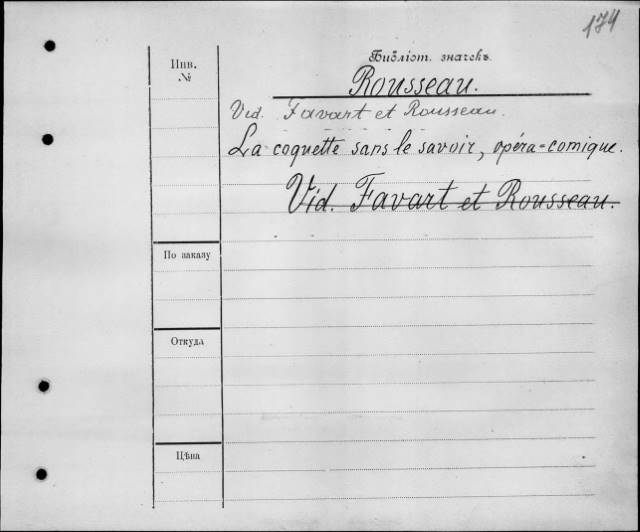 174
Инв.
№
Библіот. значекъ
Rousseau.
Vid. Favart et Rousseau.
La coquette sans le savoir, opéra-comique.
Vid. Favart et Rousseau.
По заказу
Откуда
Цѣна